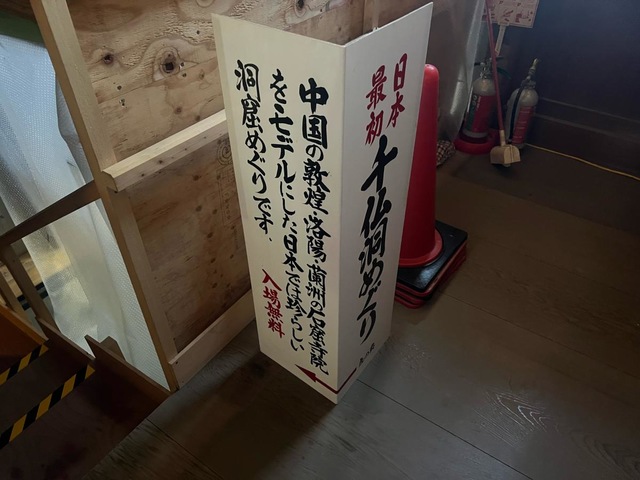 日本
最初
千仏洞めぐり
中国の敦煌・洛陽・蘭洲の石窟寺院
をモデルにした日本では珍らしい
洞窟めぐりです.
入場無料